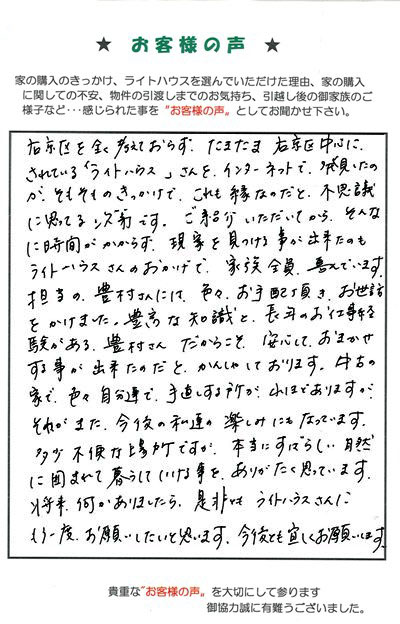 ★ お客様の声 ★
家の購入のきっかけ、ライトハウスを選んでいただけた理由、家の購入
に関しての不安、物件の引渡しまでのお気持ち、引越し後の御家族のご
様子など･･･感じられた事を"お客様の声"としてお聞かせ下さい。
右京区を全く考えておらず、たまたま 右京区中心に
されている「ライトハウス」さんを、インターネットで、発見したの
が、そもそものきっかけで、これも縁なのだと、不思議
に思ってる次第です。ご紹介いただいてから、そんな
に時間がかからず、現家を見つける事が出来たのも
ライトハウスさんのおかげで、家族全員、喜んでいます。
担当の、豊村さんには、色々、お手配頂き、お世話
をかけました。豊富な知識と、長年のお仕事経
験がある、豊村さんだからこそ、安心して、おまかせ
する事が出来たのだと、かんしゃしております。中古の
家で、色々自分達で、手直しする所が、山ほどありますが
それがまた、今後の私達の楽しみにもなっています。
多少不便な場所ですが、本当にすばらしい自然
に囲まれて暮らしていける事を、ありがたく思っています。
将来、何かありましたら、是非とも ライトハウスさんに
もう一度、お願いしたいと思います。今後とも宜しくお願いします。
貴重な"お客様の声"を大切にして参ります
御協力誠に有難うございました。